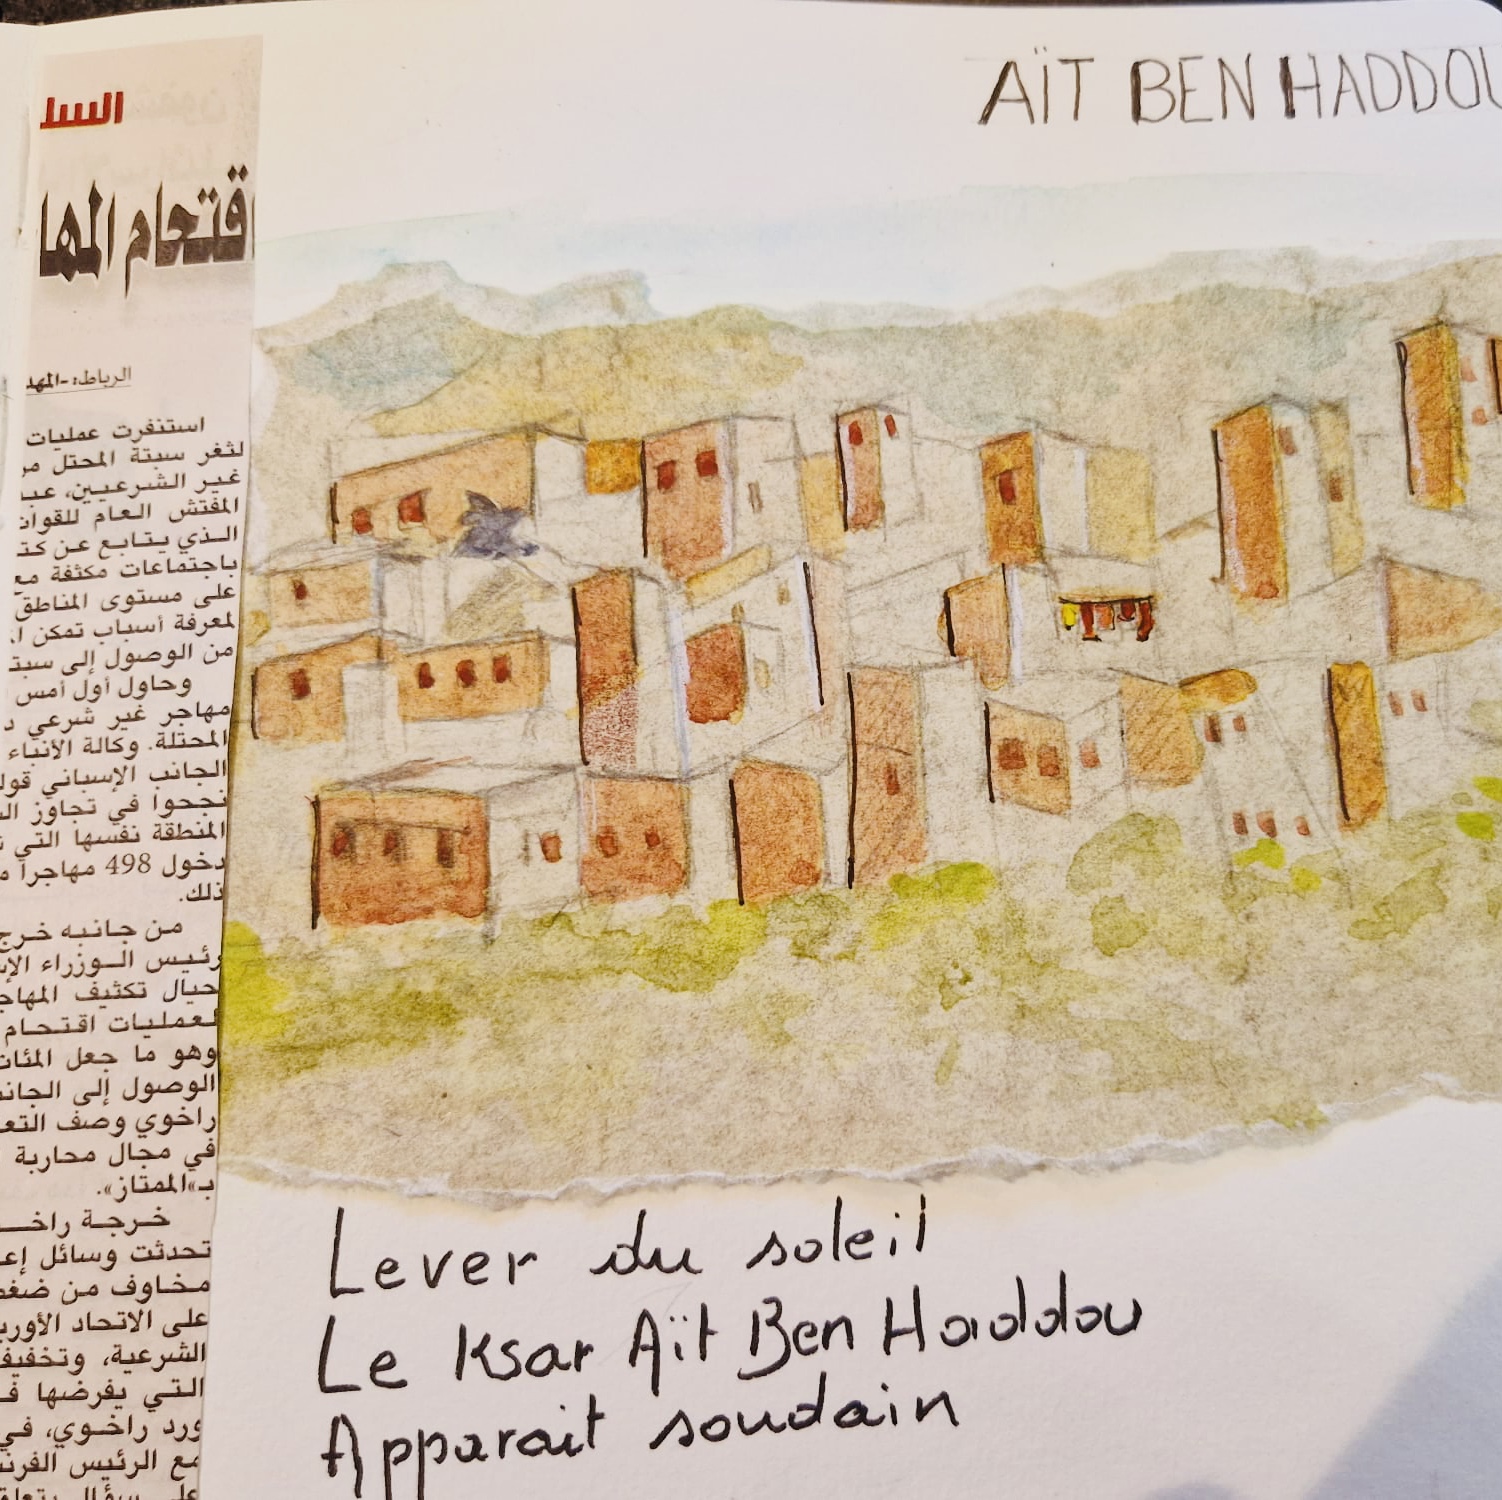 AÏT BEN HADDOU
السلا
اقتحام المها
الرباط: -المهد
استنفرت عمليات
لثغر سبتة المحتل مر
غير الشرعيين، عبـ
المفتش العام للقوات
الذي يتابع عن كثـ
باجتماعات مكثفة مع
على مستوى المناطق
لمعرفة أسباب تمكن ا
من الوصول إلى سبتـ
وحاول أول أمس
مهاجر غير شرعي د
المحتلة. وكالة الأنباء
الجانب الإسباني قولـ
نجحوا في تجاوز الـ
المنطقة نفسها التي
دخول 498 مهاجرا مـ
ذلك.
من جانبه خرج
رئيس الوزراء الإسـ
حيال تكثيف المهاجـ
لعمليات اقتحام
وهو ما جعل المئات
الوصول إلى الجانـ
راخوي وصف التعـ
في مجال محاربة
بـ«الممتاز».
خرجة راخـ
تحدثت وسائل إعـ
مخاوف من ضغط
على الاتحاد الأوربـ
الشرعية، وتخفيف
التي يفرضها فـ
ورد راخوي، في
مع الرئيس الفرنـ
على سؤال يتعلق
Lever du soleil
Le Ksar Aït Ben Haddou
Apparait soudain